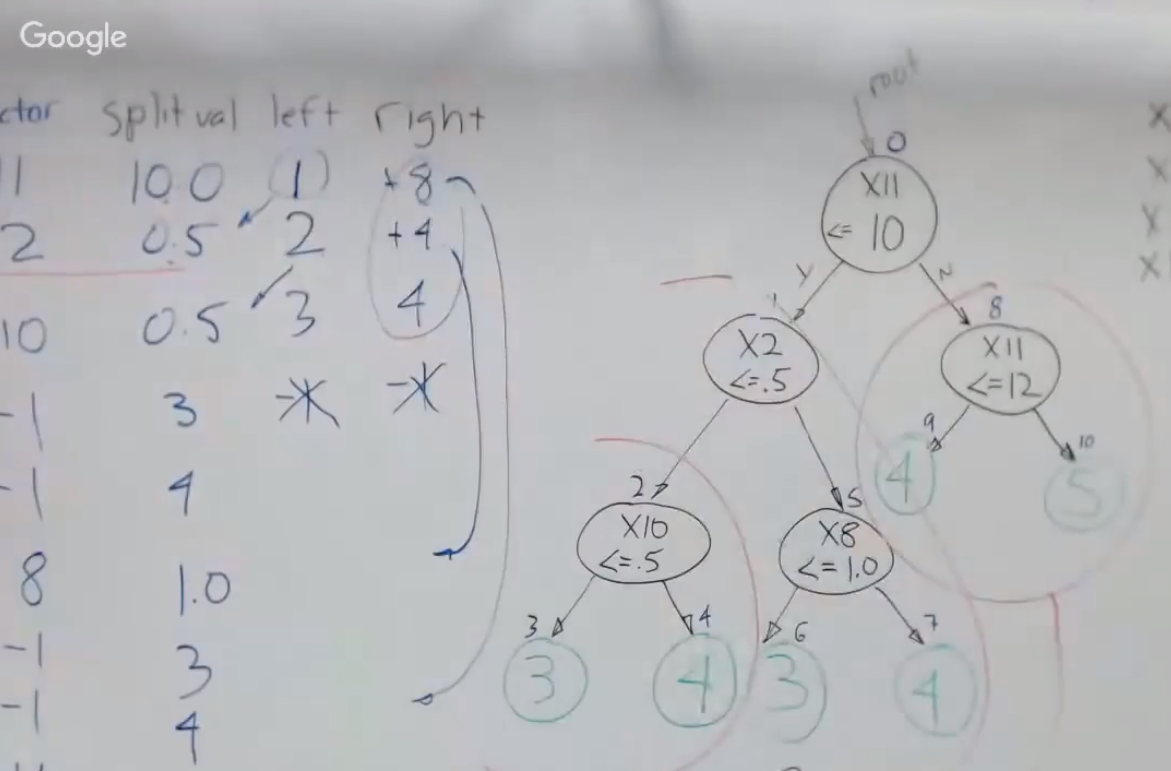 Google
ctor splitval left right
11 10.0 1 +8
2 0.5 2 +4
10 0.5 3 4
-1 3 -* -*
-1 4
8 1.0
-1 3
-1 4
root
0
X11
<= 10
Y N
1
X2
<=.5
8
X11
<=12
9 10
4 5
2
X10
<=.5
5
X8
<= 1.0
3 4 6 7
3 4 3 4
X
X
X
X